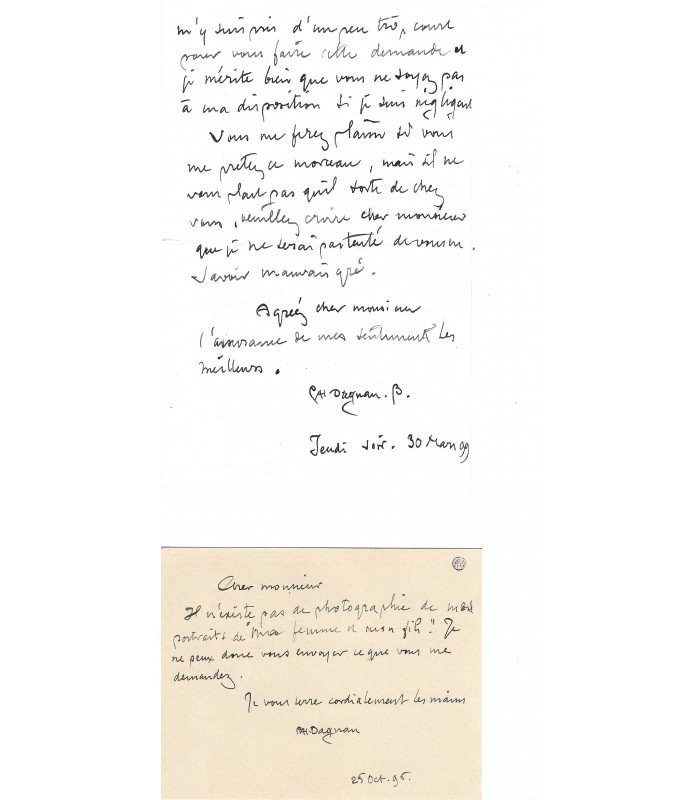 m'y suis pris d'un peu trop court
pour vous faire cette demande et
je mérite bien que vous ne soyez pas
à ma disposition si je suis négligent
Vous me ferez plaisir si vous
me prêtez ce morceau, mais s'il ne
vous plait pas qu'il sorte de chez
vous, veuillez croire cher monsieur
que je ne serai pas tenté de vous en
savoir mauvais gré.
Agréez cher monsieur
l'assurance de mes sentiments les
meilleurs.
PAJ Dagnan. B.
Jeudi soir. 30 Mars 99
Cher monsieur
Il n'existe pas de photographie de mes
portraits de "ma femme et mon fils". Je
ne peux donc vous envoyer ce que vous me
demandez.
Je vous serre cordialement les mains
PAJ. Dagnan
25 Oct. 95.